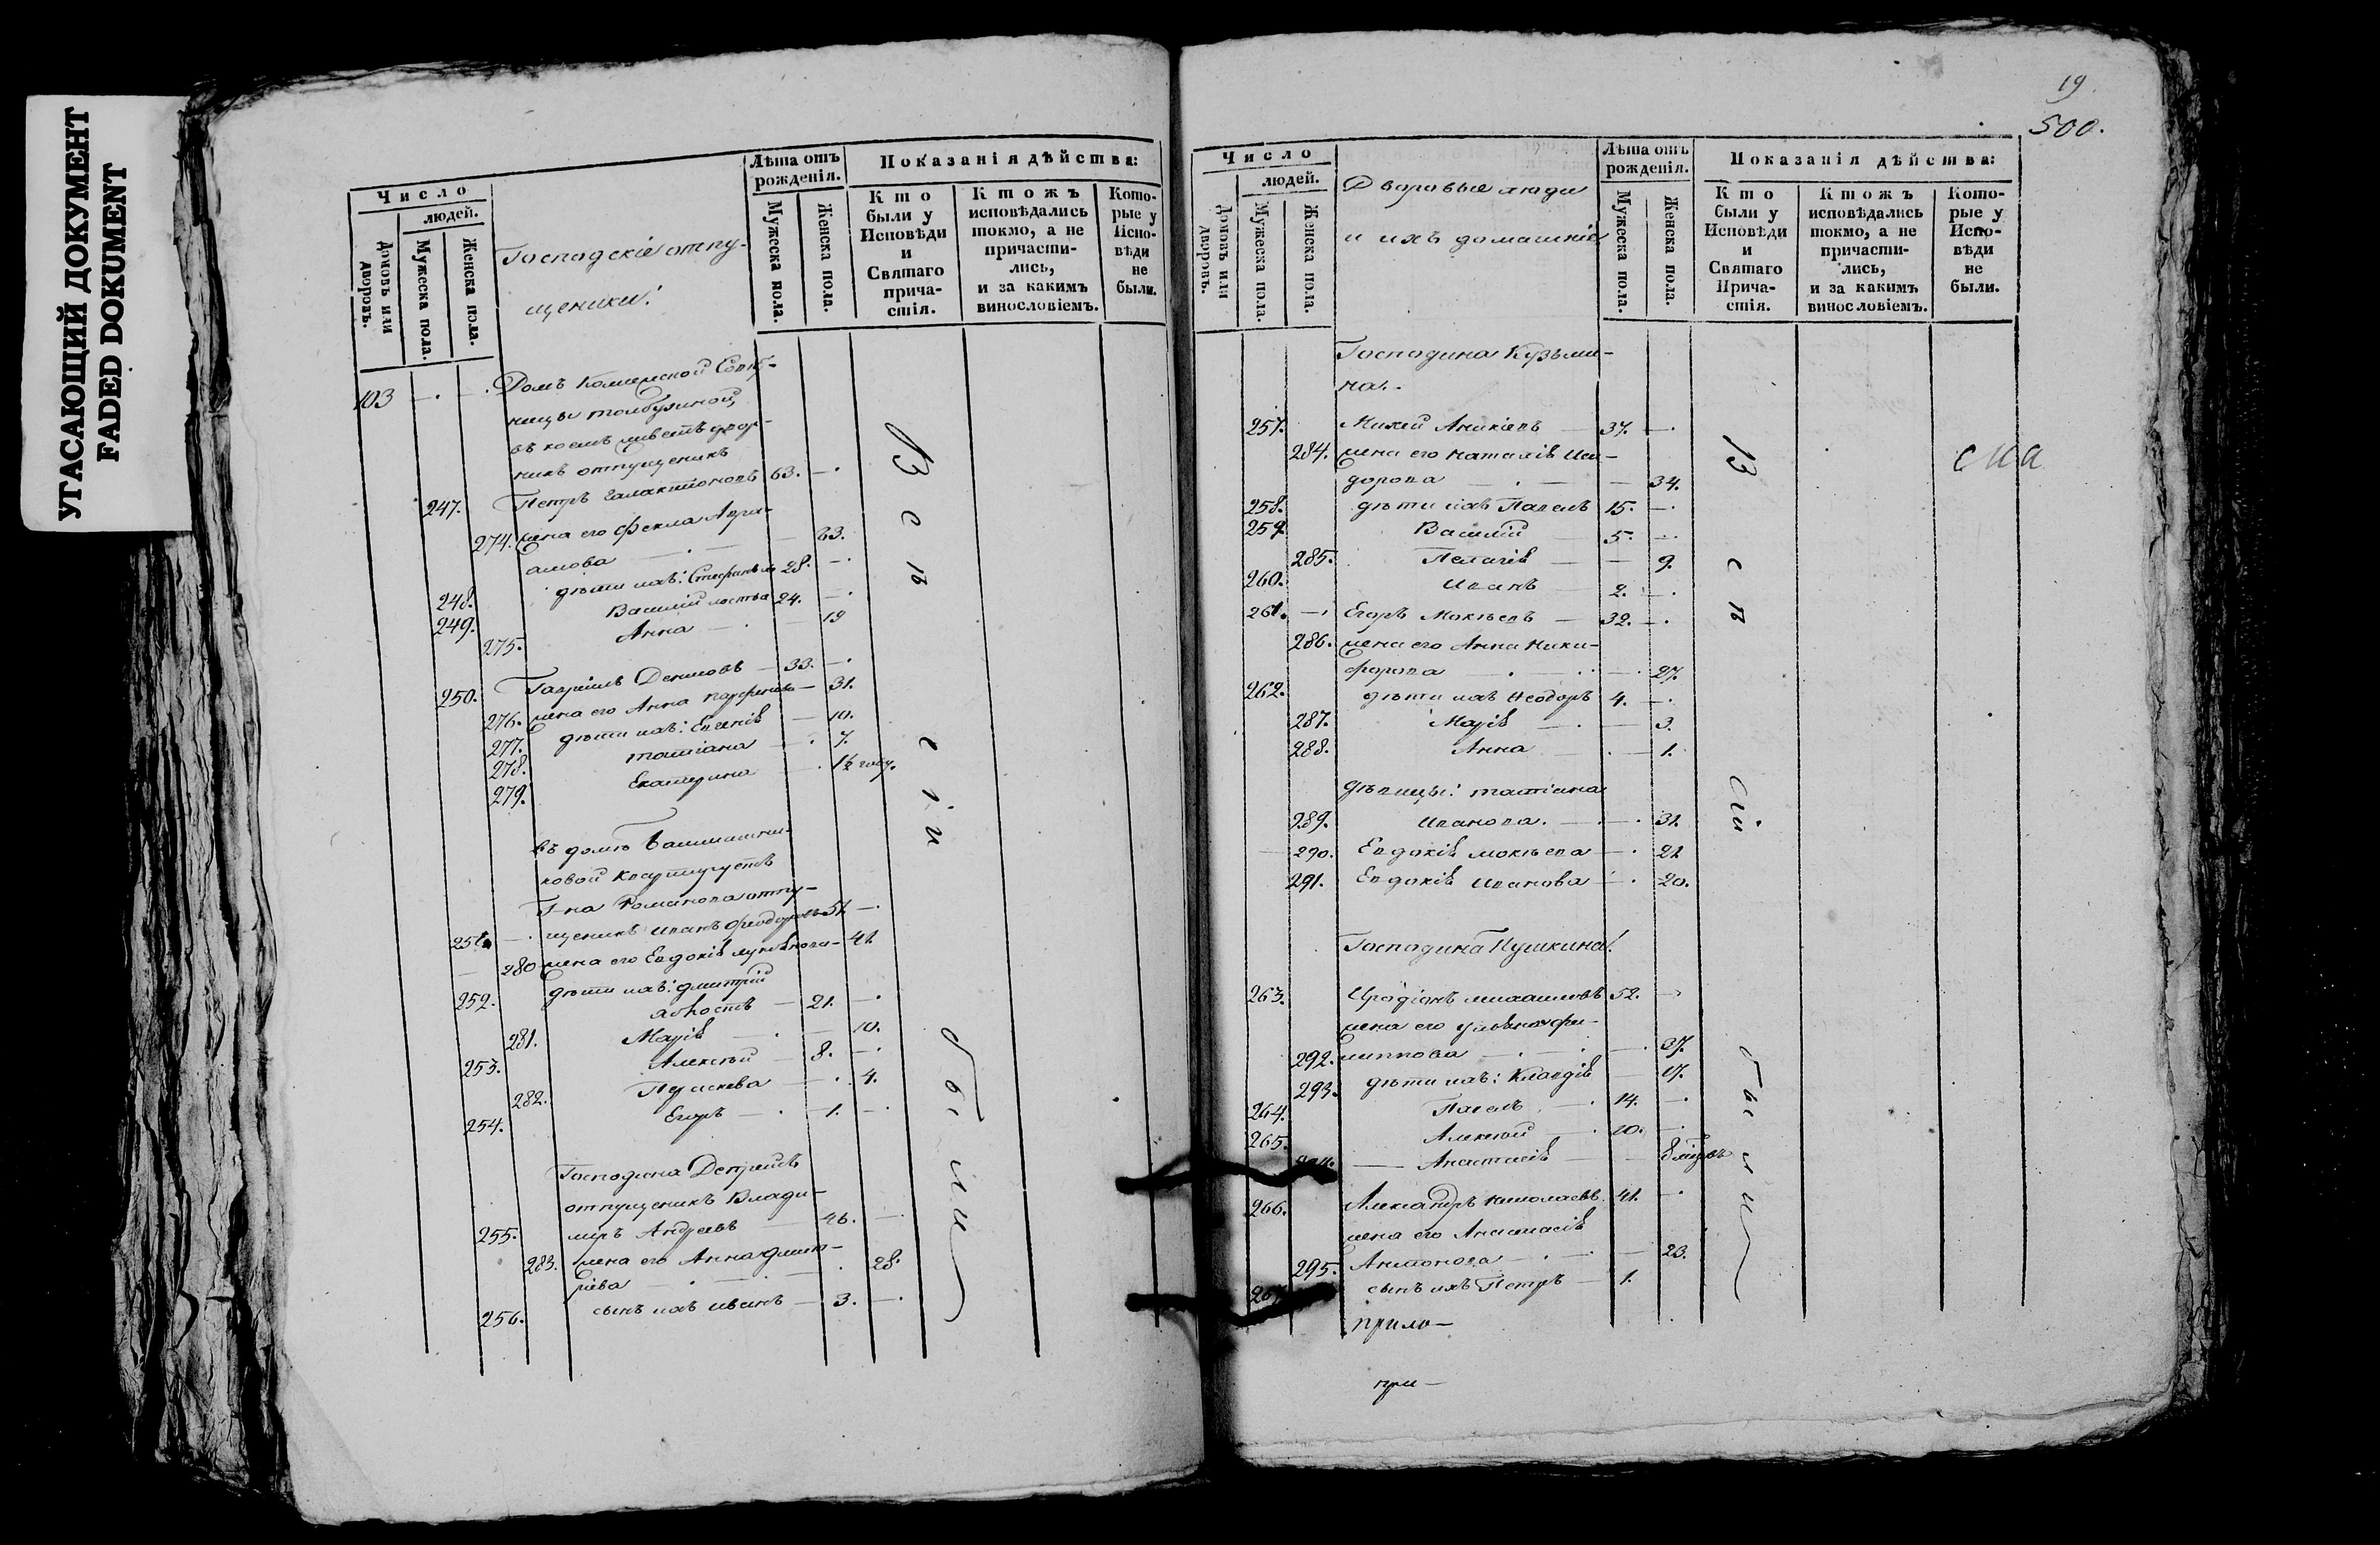 УГАСАЮЩИЙ ДОКУМЕНТ
FADED DOKUMENT
Число
людей.
Домовъ или дворовъ.
Мужеска пола.
Женска пола.
Господскіе отпу-
щеники:
Лѣта отъ рожденія.
Мужеска пола.
Женска пола.
Показанія дѣйства:
Кто были у Исповѣди и Святаго причастія.
Ктожъ исповѣдались токмо, а не причастились, и за какимъ винословіемъ.
Которые у Исповѣди не были.
103 Домъ
въ коемъ
отпущеникъ
247. Петръ Галактіоновъ 63.
274. жена его Фекла Авра-
амова 63.
248. дѣти ихъ: Стефанъ 28.
249. Василій 24.
275. Анна 19
250. Гавріилъ Денисовъ 33.
276. жена его Анна 31.
277. дѣти ихъ: Евгенія 10.
278. Татіана 7.
279. Екатерина 1½ году.
въ домѣ
Г-на Романова отпу-
251. щеникъ Иванъ Феодоровъ 51.
280 жена его Евдокія 41.
252. дѣти ихъ: Дмитрій
холостъ 21.
281. Марія 10.
253. Алексѣй 8.
282. 4.
254. Егоръ 1.
Господина
отпущеникъ Влади-
255. міръ Андреевъ 46.
283. жена его Анна Дмит-
ріева 28.
256. сынъ ихъ Иванъ 3.
В с ѣ
с і и
б ы л и
19.
500.
Число
людей.
Домовъ или дворовъ.
Мужеска пола.
Женска пола.
Дворовые люди
и ихъ домашніе
Лѣта отъ рожденія.
Мужеска пола.
Женска пола.
Показанія дѣйства:
Кто были у Исповѣди и Святаго Причастія.
Ктожъ исповѣдались токмо, а не причастились, и за какимъ винословіемъ.
Которые у Исповѣди не были.
Господина Кузьми-
на.
257. Михей Аникіевъ 37.
284. жена его Наталія Иси-
дорова 34.
258. дѣти ихъ Павелъ 15.
259 Василій 5.
285. Пелагія 9.
260. Иванъ 2.
261. Егоръ Мокѣевъ 32.
286. жена его Анна Ники-
форова 27.
262. дѣти ихъ Ѳеодоръ 4.
287. Марія 3.
288. Анна 1.
дѣвицы: Татіана
289. Иванова. 31.
290. Евдокія Мокѣева 21
291. Евдокія Иванова 20.
Господина Пушкина:
263. Иродіонъ Михаиловъ 52.
жена его Ульяна Фи-
292. липпова 37.
293. дѣти ихъ: Клавдія 17.
264. Павелъ 14.
265. Алексѣй 10.
Анастасія
266. Александръ Николаевъ 41.
жена его Анастасія
295. Антонова 23.
сынъ ихъ Петръ 1.
при-
В с ѣ
сіи
б ы л и